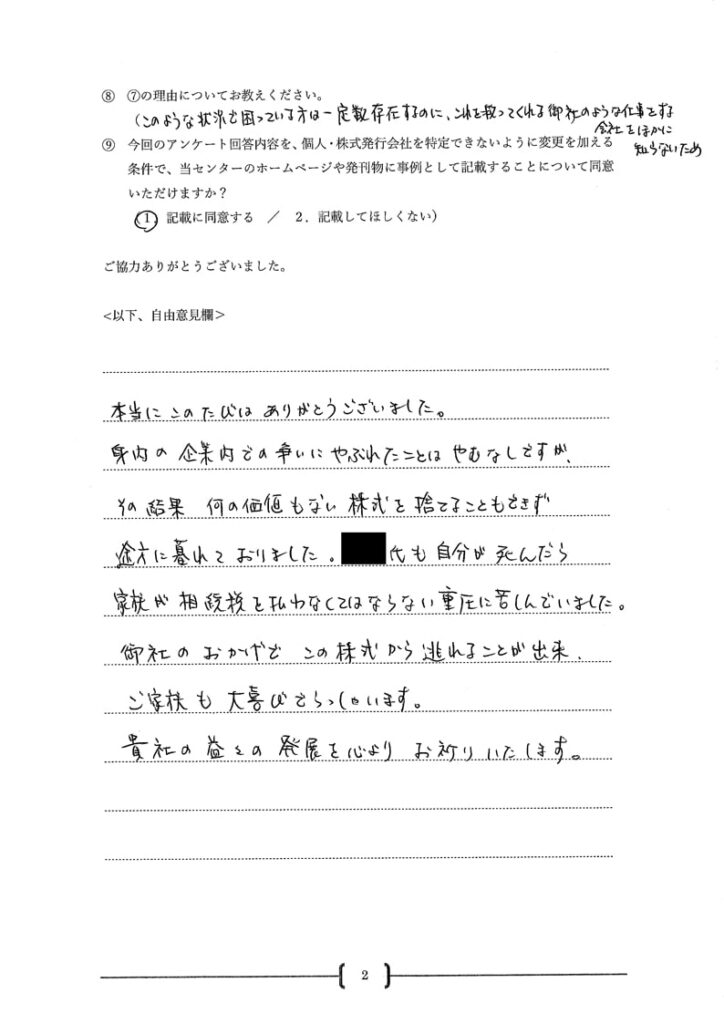 ⑧ ⑦の理由についてお教えください。
(このような状況で困っている方は一定数存在するのに、これを救ってくれる御社のような仕事をする
会社をほかに
知らないため
⑨ 今回のアンケート回答内容を、個人・株式発行会社を特定できないように変更を加える
条件で、当センターのホームページや発刊物に事例として記載することについて同意
いただけますか?
(1 記載に同意する / 2. 記載してほしくない)
ご協力ありがとうございました。
<以下、自由意見欄>
本当にこのたびはありがとうございました。
身内の企業内での争いにやぶれたことはやむなしですが、
その結果 何の価値もない株式を捨てることもできず
途方に暮れておりました。 氏も自分が死んだら
家族が相続税を払わなくてはならない重圧に苦しんでいました。
御社のおかげでこの株式から逃れることが出来、
ご家族も大喜びでらっしゃいます。
貴社の益々の発展を心よりお祈りいたします。
2